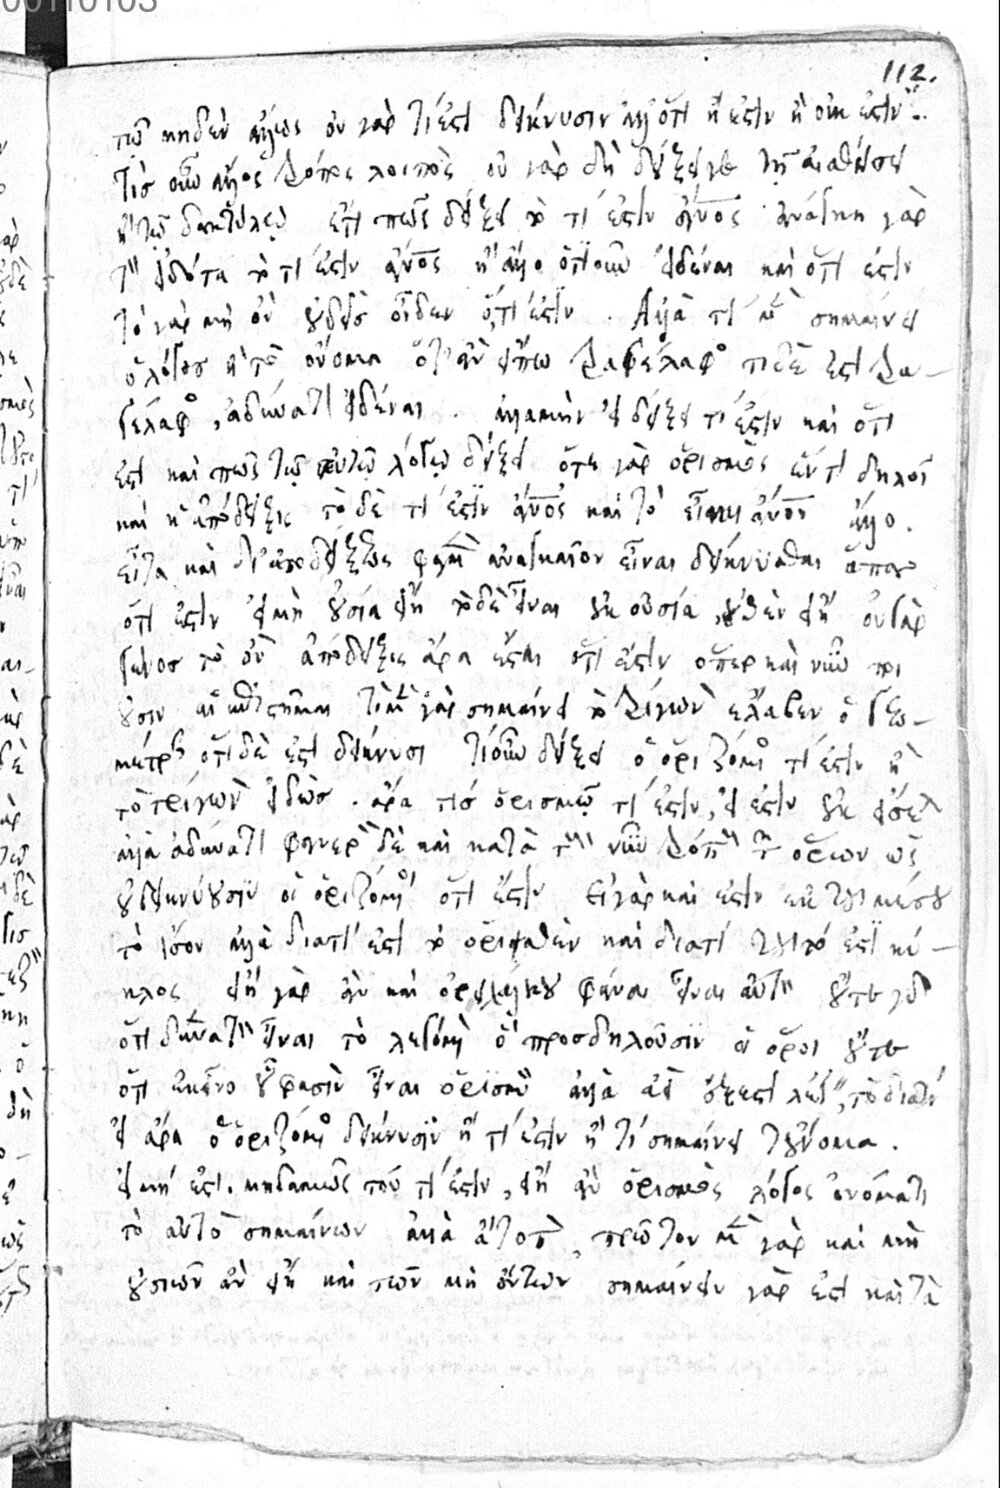 112.
τῶ μηδὲν ἄλλως οὐ γὰρ τί ἐστι δείκνυσιν ἀλλ' ὅτι ἢ ἔστιν ἢ οὐκ ἔστιν
τίς οὖν ἄλλος τρόπος λοιπός οὐ γὰρ δὴ δείξει γε τῇ αἰσθήσει
ἢ τῷ δακτύλῳ ἔτι πῶς δείξει τὸ τί ἐστιν ἀνος ἀνάγκη γὰρ
τὸν εἰδότα τὸ τί ἐστιν ἀνος ἢ ἄλλο ὁτιοῦν εἰδέναι καὶ ὅτι ἐστιν
τὸ γὰρ μὴ ὂν οὐδεὶς οἶδεν ὅτι ἐστίν . Ἀλλὰ τί μὲν σημαίνει
ὁ λόγος ἢ τὸ ὄνομα ὅταν εἴπω τραγέλαφος τί δέ ἐστι τρα-
γέλαφος, ἀδύνατον εἰδέναι . ἀλλὰ μὴν εἰ δείξει τί ἐστιν καὶ ὅτι
ἐστι καὶ πῶς τῷ αὐτῷ λόγῳ δείξει ὅ τε γὰρ ὁρισμὸς ἕν τι δηλοῖ
καὶ ἡ ἀπόδειξις τὸ δὲ τί ἐστιν ἀνος καὶ τὸ εἶναι ἀνον ἄλλο .
εἶτα καὶ δι' ἀποδείξεώς φαμεν ἀναγκαῖον εἶναι δείκνυσθαι ἅπαν
ὅτι ἐστιν εἰ μὴ οὐσία εἴη τὸ δὲ εἶναι οὐκ οὐσία, οὐδενὶ οὐ γὰρ
γένος τὸ ὂν ἀπόδειξις ἄρα ἔσται ὅτι ἐστιν ὅπερ καὶ νῦν ποι
οῦσιν αἱ ἐπιστῆμαι τί μὲν γὰρ σημαίνει τὸ τρίγωνον ἔλαβεν ὁ γεω-
μέτρης ὅτι δὲ ἐστι δείκνυσι τί οὖν δείξει ὁ ὁριζόμενος τί ἐστιν ἢ
τὸ τρίγωνον εἰδὼς . ἄρα τις ὁρισμῷ τί ἐστιν, εἰ ἔστιν οὐκ εἴσεται
ἀλλὰ ἀδύνατον φανερὸν δὲ καὶ κατὰ τοὺς νῦν τρόπους τῶν ὅρων ὡς
οὐ δεικνύουσιν οἱ ὁριζόμενοι ὅτι ἔστιν εἰ γὰρ καὶ ἔστιν ἐκ τοῦ μέσου
τὸ ἴσον ἀλλὰ διατί ἐστι τὸ ὁρισθὲν καὶ διατί τοῦτό ἐστι κύ-
κλος εἴη γὰρ ἂν καὶ ὀρειχάλκου φάναι εἶναι αὐτόν οὔτε γὰρ
ὅτι δυνατὸν εἶναι τὸ λεγόμενον προσδηλοῦσιν οἱ ὅροι οὔτε
ὅτι ἐκεῖνο οὗ φασὶν εἶναι ὁρισμοί ἀλλὰ ἀεὶ ἔξεστι λέγειν, τὸ διατί
εἰ ἄρα ὁ ὁριζόμενος δείκνυσιν ἢ τί ἐστιν ἢ τί σημαίνει τοὔνομα .
εἰ μή ἐστι. μηδαμῶς τοῦ τί ἐστιν, εἴη ἂν ὁρισμὸς λόγος ὀνόματι
τὸ αὐτὸ σημαίνων ἀλλὰ ἄτοπον, πρῶτον μὲν γὰρ καὶ μὴ
οὐσιῶν ἂν εἴη καὶ τῶν μὴ ὄντων σημαίνειν γὰρ ἔστι καὶ τὰ